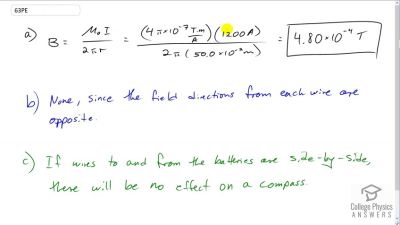 63PE
a) B = μ₀I / 2πr = (4π×10⁻⁷ T·m/A)(1200A) / 2π(50.0×10⁻²m) = 4.80×10⁻⁴ T
b) None, since the field directions from each wire are
opposite.
c) If wires to and from the batteries are side-by-side,
there will be no effect on a compass.
College Physics
ANSWERS